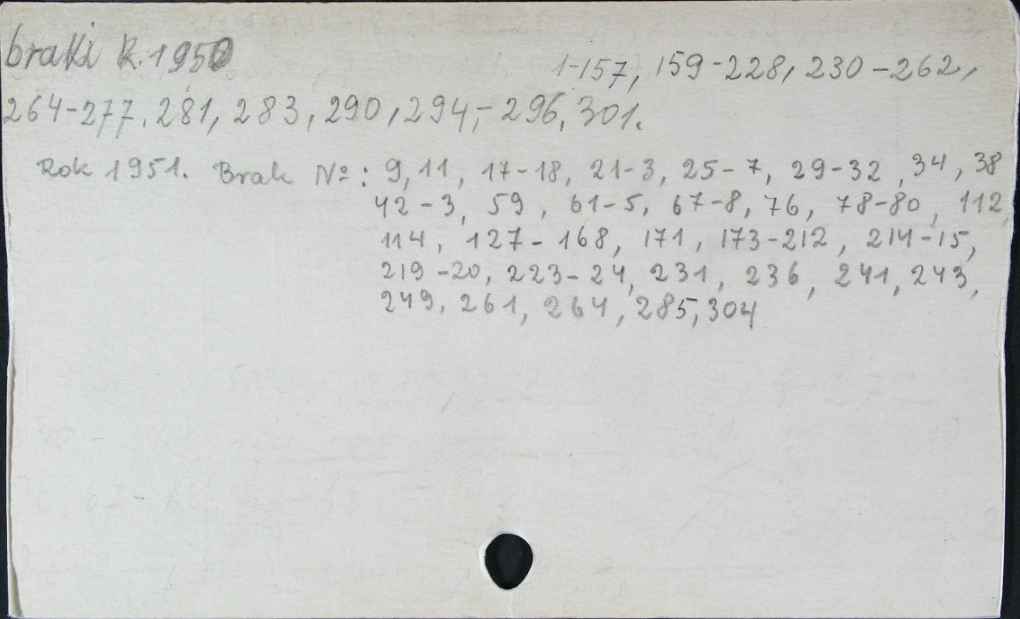 braki R. 1950 1-157, 159-228, 230-262,
264-277, 281, 283, 290, 294,- 296, 301.
Rok 1951. Brak Nº: 9, 11, 17-18, 21-3, 25-7, 29-32, 34, 38
42-3, 59, 61-5, 67-8, 76, 78-80, 112,
114, 127-168, 171, 173-212, 214-15,
219-20, 223-24, 231, 236, 241, 243,
249, 261, 264, 285, 304